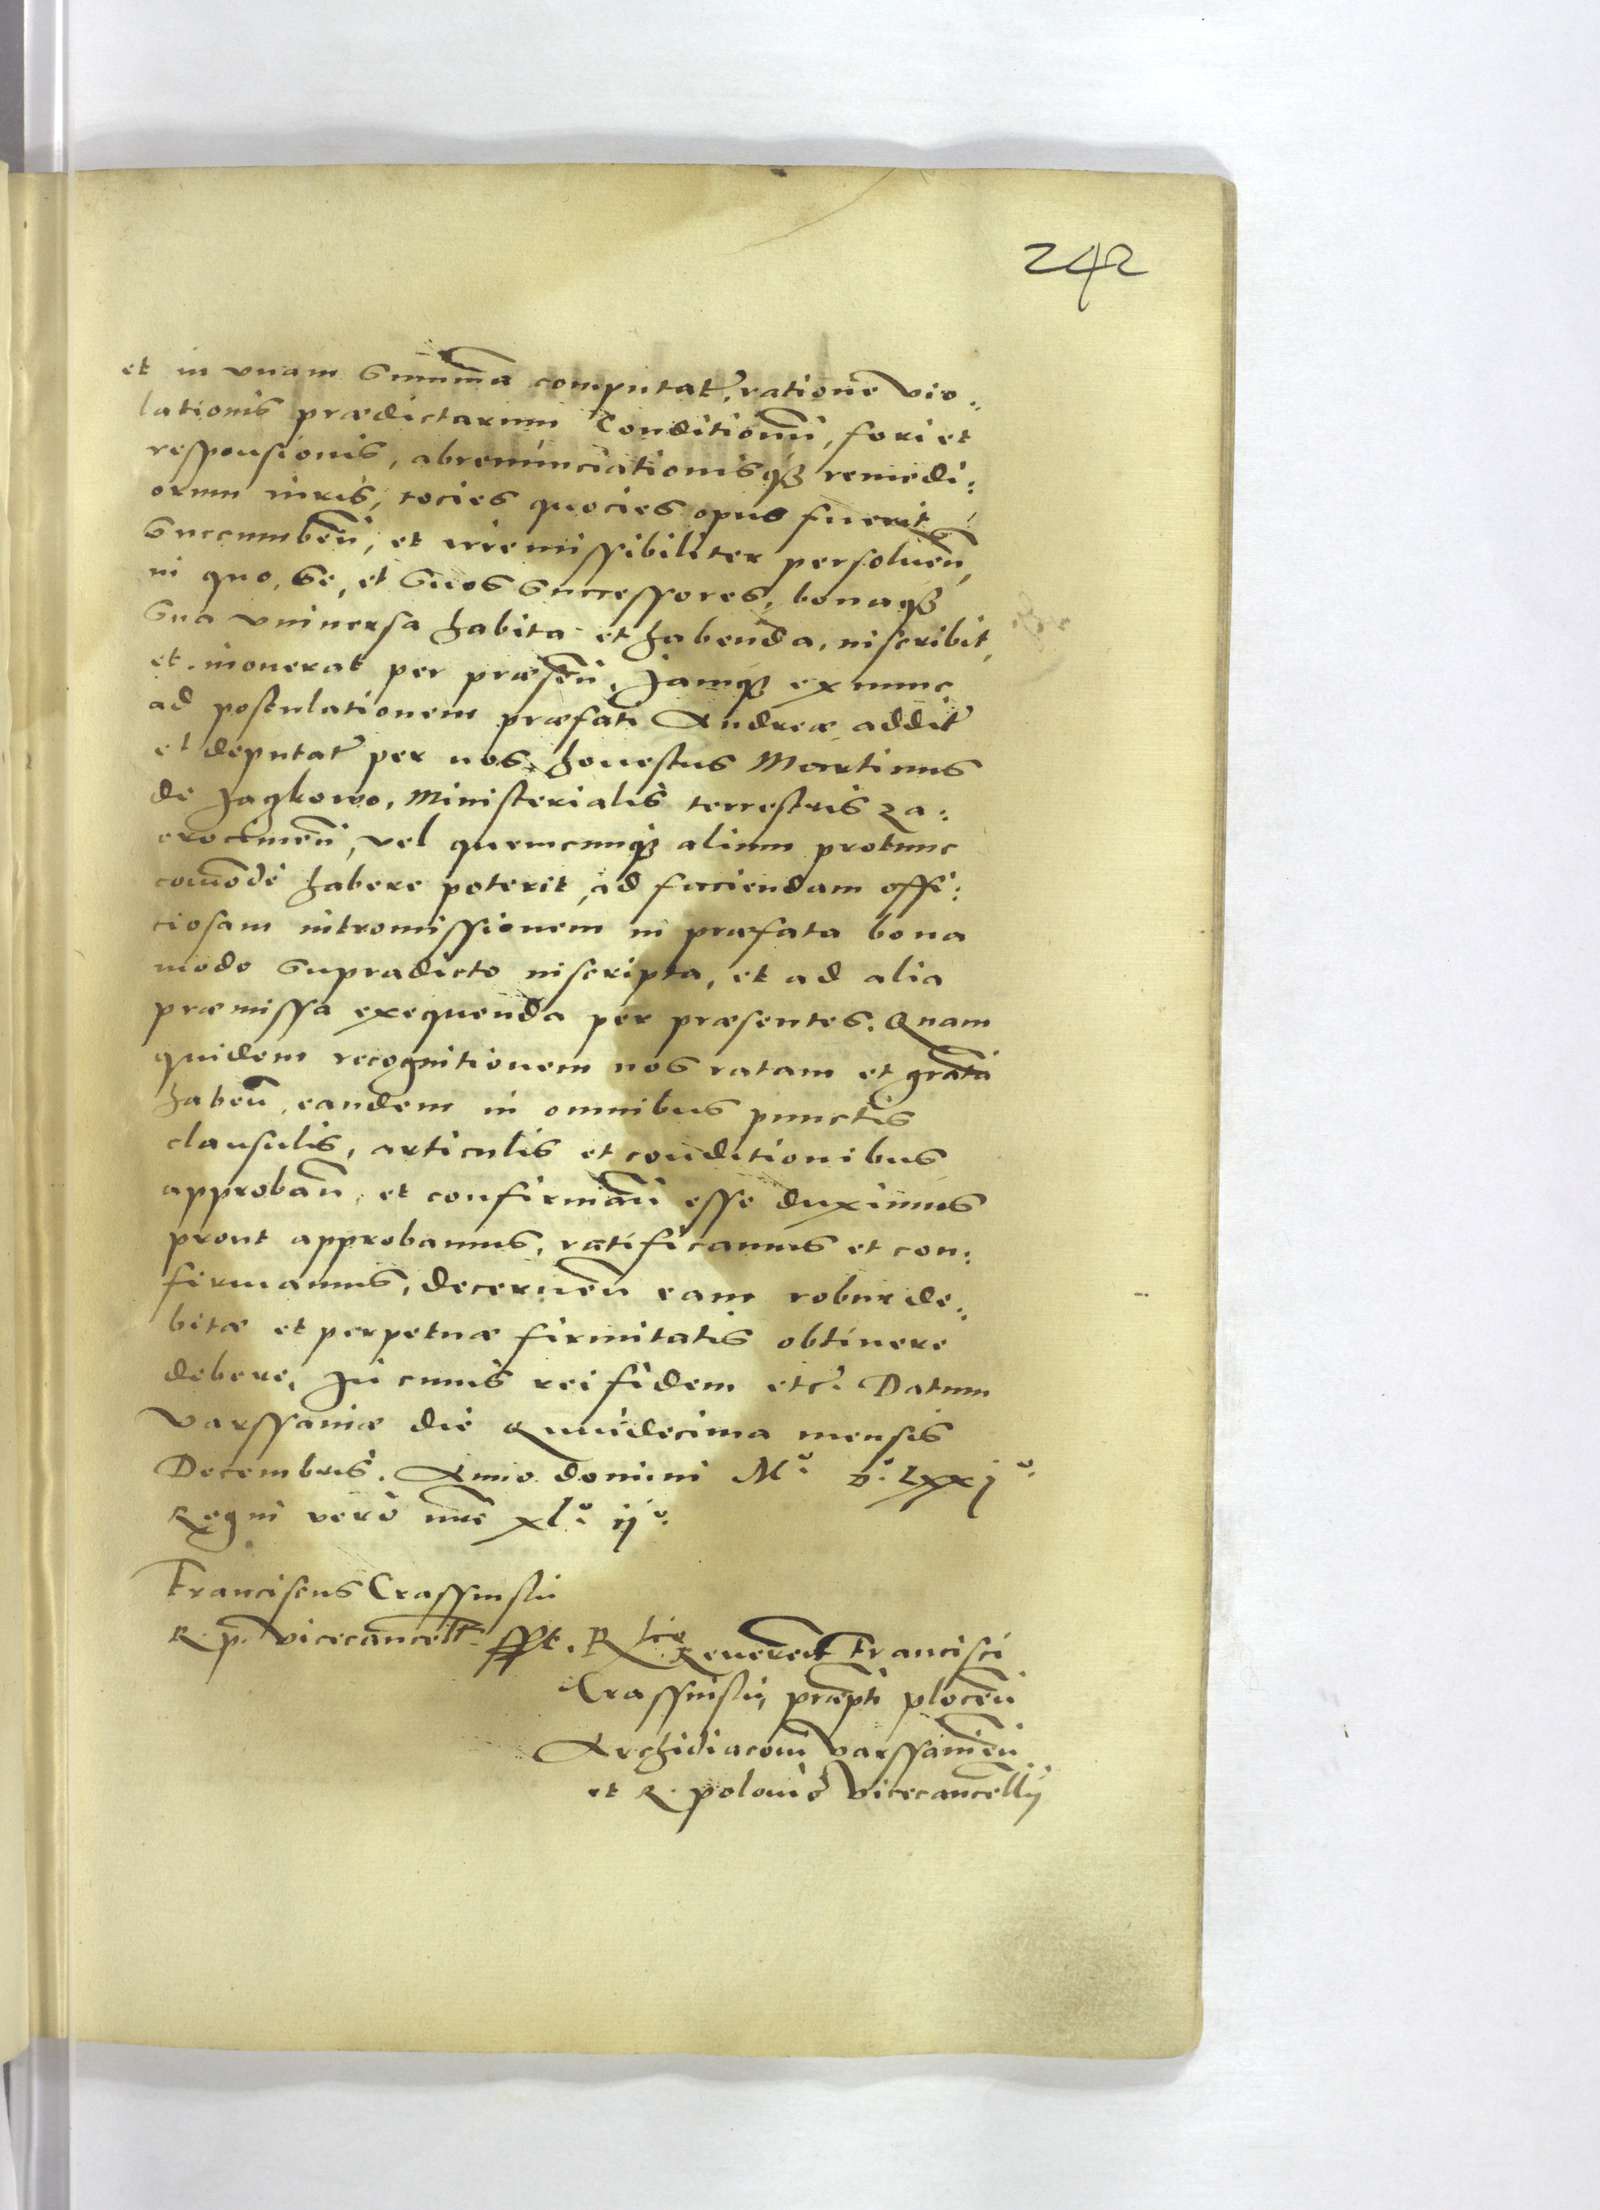 242
et in vnam Summa computat, ratione vio:
lationis prædictarum Conditionũ, fori et
responsionis, abrenunciationisq3 remedi:
orum iuris, tocies quocies opus fuerit
Succumbeñ, et irremissibiliter persolueñ,
in quo, se, et suos successores, bonaq3
sua vniuersa habita et habenda, inscribit,
et inonerat per præseñ. Jamq3 ex nunc
ad postulationem præfati Andreæ addit
et deputat per nos, honestus Martinus
de Jagkowo, Ministerialis terrestris za:
crocimeñ, vel quemcunq3 alium protunc
comode habere poterit, ad faciendam offi:
ciosam intromissionem in præfata bona
modo supradicto inscripta, et ad alia
præmissa exequenda per præsentes. Quam
quidem recognitionem nos ratam et gratã
habeñ, eandem in omnibus punctis
clausulis, articulis et conditionibus
approbañ, et confirmañ esse duximus
prout approbamus, ratificamus et con:
firmamus, decerneñ eam robur de:
bitæ et perpetuæ firmitatis obtinere
debere, In cuius rei fidem etc. Datum
Varssauiæ die Quindecima mensis
Decembris. Anno domini M° D° LXXj°
Regni vero nrẽ xl° ij°
Franciscus Crassinskij
R. p. vicecancell.
Rtio Reuerend Francisci
Crassinskij, præpti ploceñ
Archidiaconi Varssauieñ
et R. polonie Vicecancellij